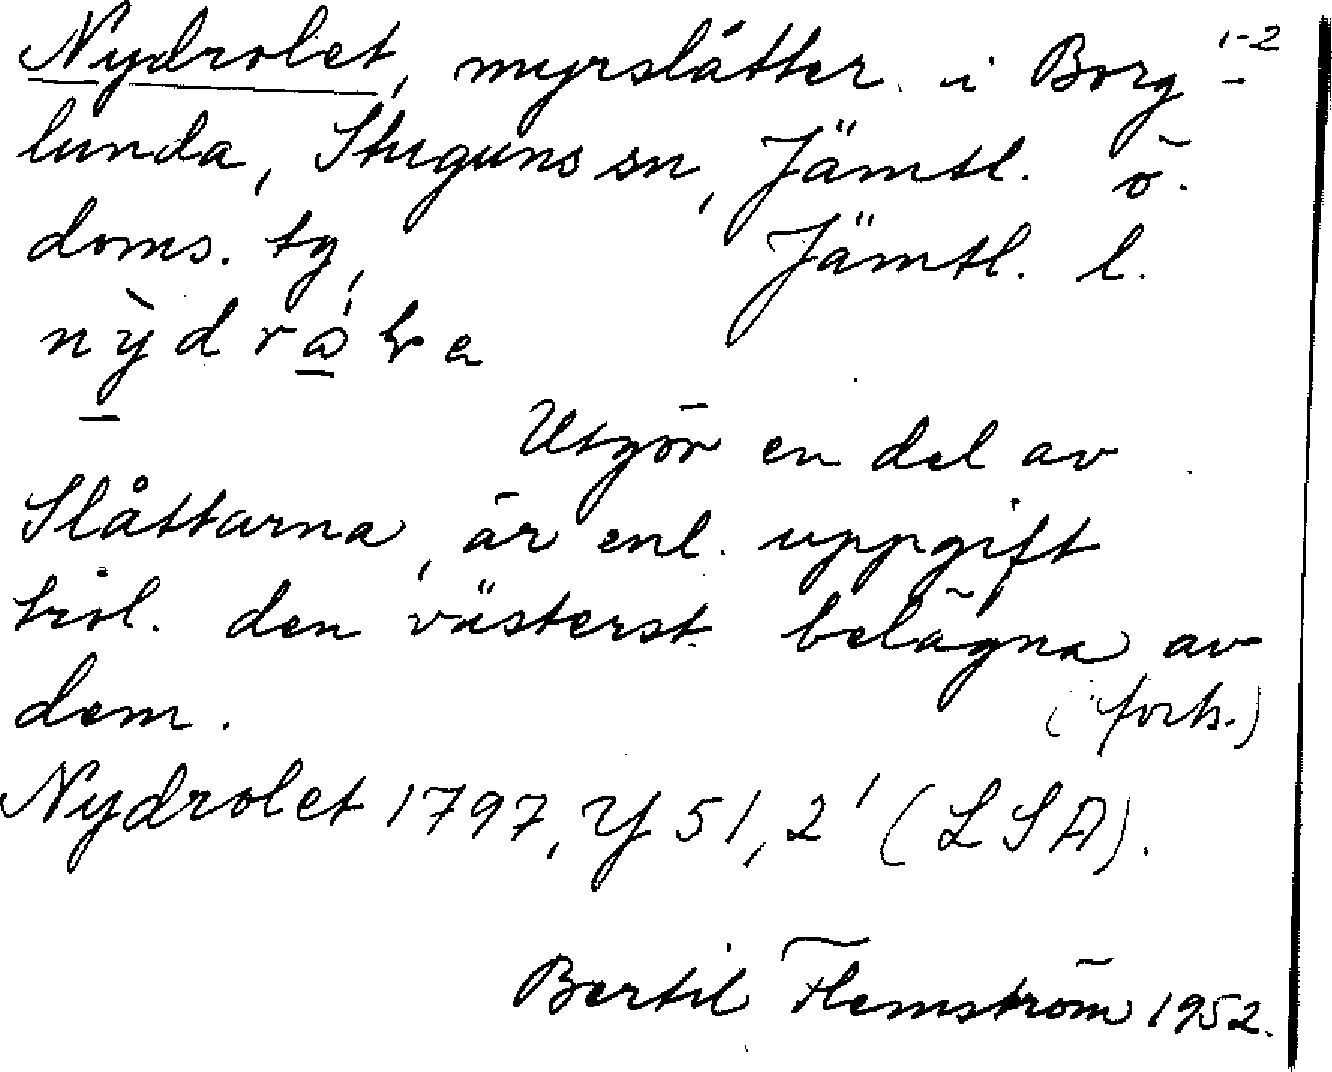 Nydrolet, myrslåtter i Borg- 1-2
lunda, Stuguns sn, Jämtl. ö.
doms. tg, Jämtl. l.
Utgör en del av
Slåttarna, är enl. uppgift
trol. den västerst belägna av
dem. (forts.)
Nydrolet 1797, Y 51, 2' (LSA).
Bertil Flemström 1952.